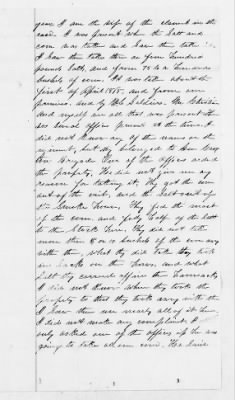 year I am the wife of the claimant in the
case. I was present when the Salt and
corn was taken and saw them take it.
I saw them take three or four hundred
pounds Salt, and from 75 to a hundred
bushels of corn. It was taken about the
first of April 1865. and from our
premises. and by the Soldiers. Mr
and myself are all that was present
several officers present at the time. I
did not know any of the names or the
regiment, but they belonged to Gen
Brigade One of the officers ordered
the property, He did not give me any
reason for taking it, they got the corn
out of the crib, and the Salt out of
the Smoke house, They fed the most
of the corn, and fully half of the salt
to the Stock here, They did not take
more than 8 or 10 bushels of the corn away
with them, what they did take they took
in sacks on their horses, and what
Salt they carried off
I did not know when they took the
property to that they took away with them
I saw them use nearly all of it here
I did not make any complaint. I
only asked one of the officers if he was
going to take all our corn. He said